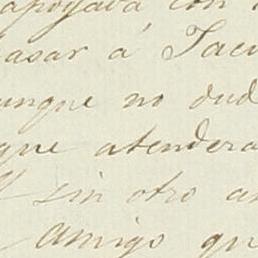 apoyaba con
asar á Tacu
unque no dud
que atendera
sin otro a
amigo qu